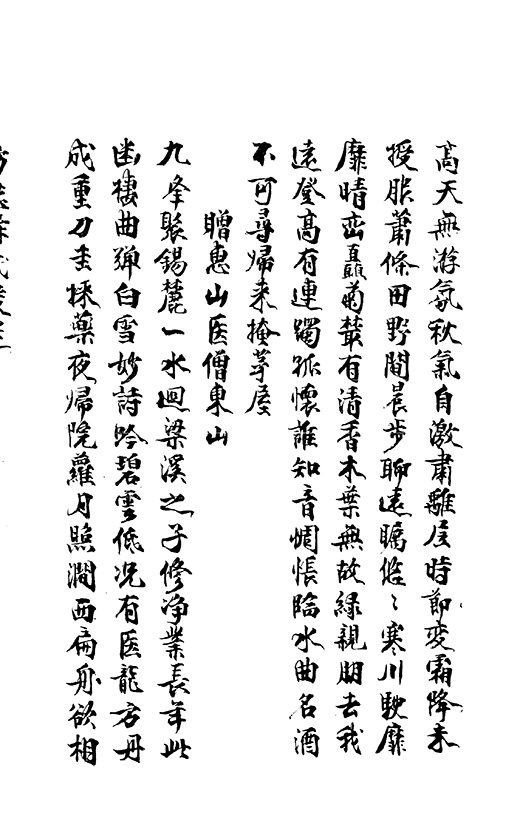 高天無游氛秋氣自激肅離居時節變霜降來
授服蕭條田野間晨步聊遠矚悠〻寒川駛靡
靡晴巒矗菊叢有清香木葉無故綠親朋去我
遠登高有連躅孤懷誰知音惆悵臨水曲名酒
不可尋歸来掩茅屋
贈惠山医僧東山
九峰聚錫麓一水迴梁溪之子修净業長年此
幽棲曲弹白雪妙詩吟碧雲低况有医龍方丹
成重刀圭採藥夜歸院蘿月照澗西扁舟欲相